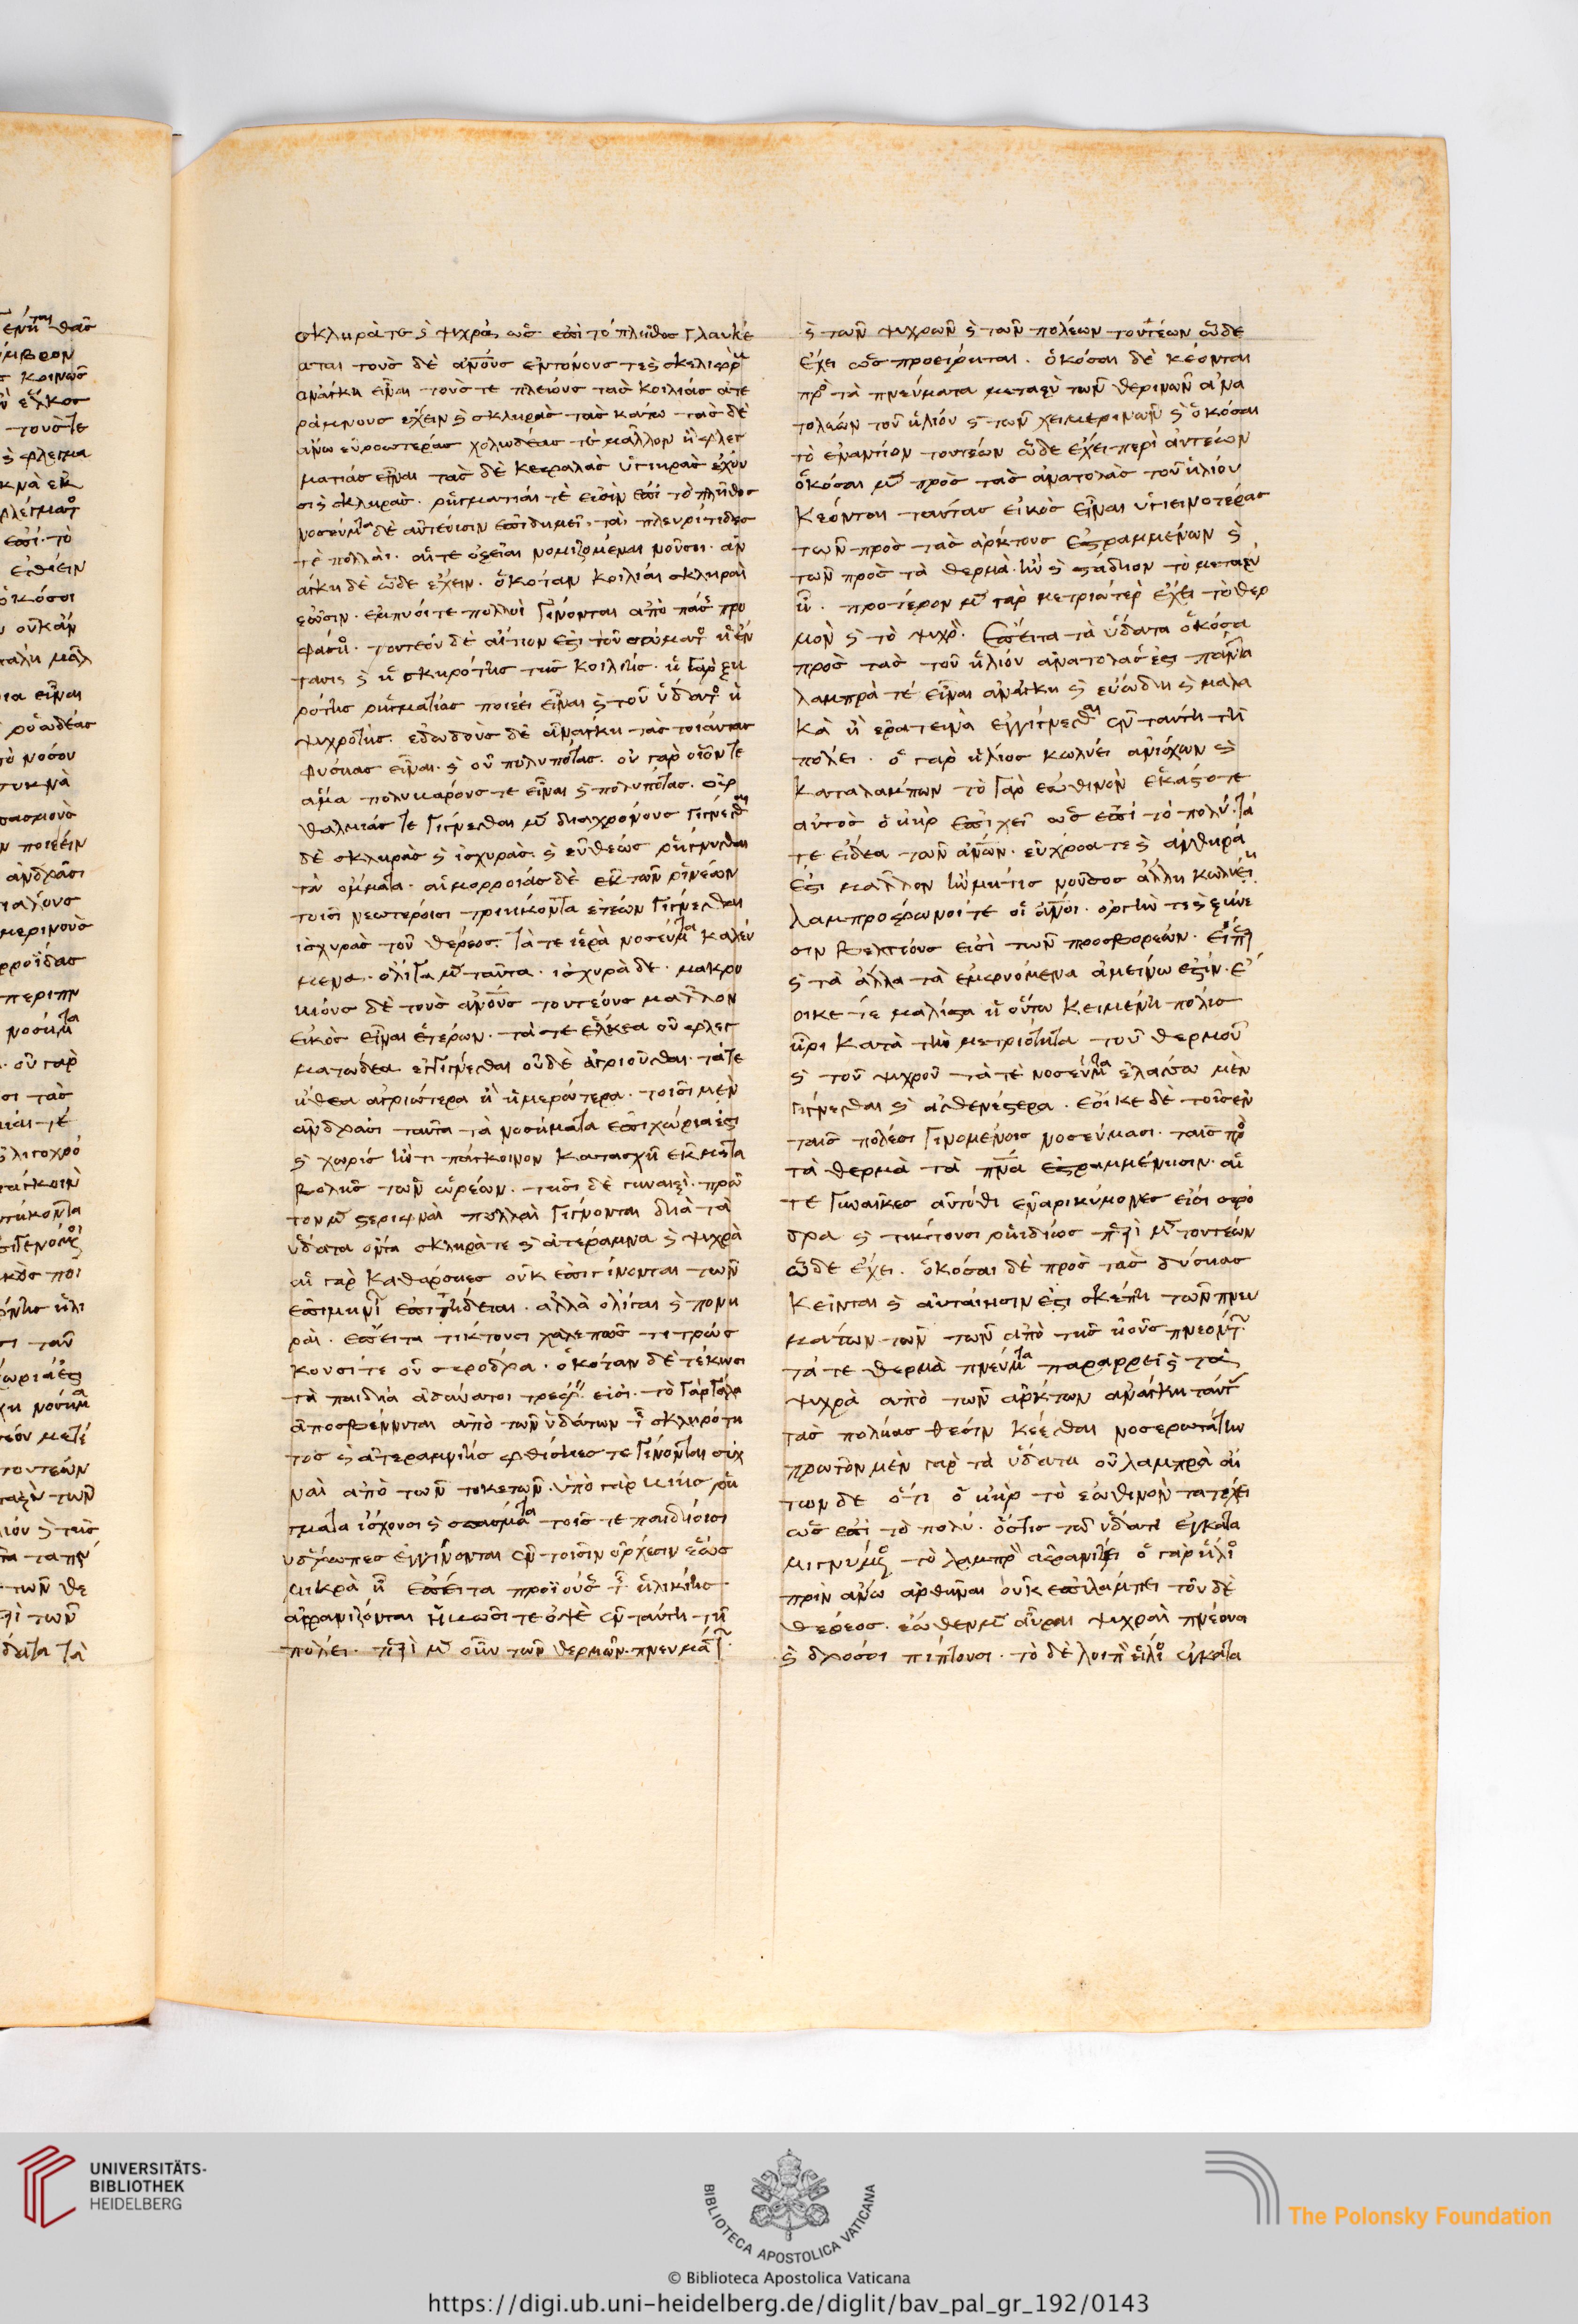 σκληρά τε καὶ ψυχρὰ, ὡς ἐπὶ τὸ πλῆθος γλυκέ
αται τοὺς δὲ ἀνοὺς ἐντόνους τε καὶ σκελιφροὺς
ἀνάγκη εἶναι τούς τε πλείους τὰς κοιλίας ἀτε
ράμνους ἔχειν καὶ σκληρὰς τὰς κάτω τὰς δὲ
ἄνω εὐροωτέρας χολώδεάς τε μᾶλλον ἢ φλεγ
ματίας εἶναι τὰς δὲ κεφαλὰς ὑγιηρὰς ἔχου
σι καὶ σκληράς. ῥηγματίαι τέ εἰσὶν ἐπὶ τὸ πλῆθος
νοσεύματα δὲ αὐτέοισιν ἐπιδημεῖ. τὰ, πλευρίτιδες
τὲ πολλαὶ. αἵ τε ὀξεῖαι νομιζόμεναι νοῦσοι. ἀν
άγκη δὲ ὧδε ἔχειν. ὁκόταν κοιλίαι σκληραὶ
ἐῶσιν. ἔμπυοί τε πολλοὶ γίνονται ἀπὸ πάσης προ
φάσιος. τουτέον δὲ αἴτιόν ἐστι τοῦ σώματος ἡ ἔν
τασις καὶ ἡ σκηρότης τῆς κοιλίης. ἡ γὰρ ξη
ρότης ῥηγματίας ποιέει εἶναι καὶ τοῦ ὕδατος ἡ
ψυχρότης. ἐδωδοὺς δὲ ἀνάγκη τὰς τοιάυτας
φύσιας εἶναι. καὶ οὐ πολυπότας. οὐ γὰρ οἷόν τε
ἅμα πολυβόρους τε εἶναι καὶ πολυπότας. ὀφ
θαλμίας τε γίγνεσθαι μὲν διαχρόνους γίγνεσθαι
δὲ σκληρὰς καὶ ἰσχυρὰς. καὶ εὐθέως ῥήγνυσθαι
τὰ ὄμματα. αἱμορροίας δὲ ἐκ τῶν ῥινέων
τοῖσι νεωτέροισι τριήκοντα ἐτέων γίγνεσθαι
ἰσχυρὰς τοῦ θέρεος. τά τε ἱερὰ νοσεύματα καλεύ
μενα. ὀλίγα μὲν ταῦτα. ἰσχυρὰ δὲ. μακρο
βίους δὲ τοὺς ἀνούς τουτέους μᾶλλον
εἰκὸς εἶναι ἑτέρων. τά τε ἕλκεα οὐ φλεγ
ματώδεα ἐγγίγνεσθαι οὐδὲ ἀγριοῦσθαι. τά τε
ἤθεα ἀγριώτερα ἢ ἡμερώτερα. τοῖσι μὲν
ἀνδράσι ταῦτα τὰ νοσήματα ἐπιχώριά ἐστι
καὶ χωρὶς ἤν τι πάγκοινον κατασχῇ ἐκ μετα
βολῆς τῶν ὡρέων. τῇσι δὲ γυναιξὶ. πρῶ
τον μὲν στεριφναὶ πολλαὶ γίγνονται διὰ τὰ
ὕδατα ὄντα σκληρά τε καὶ ἀτέραμνα καὶ ψυχρὰ
αἱ γὰρ καθάρσιες οὐκ ἐπιγίνονται τῶν
ἐπιμηνίων ἐπιτήδειαι. ἀλλὰ ὀλίγαι καὶ πονη
ραὶ. ἔπειτα τίκτουσι χαλεπῶς τιτρώς
κουσί τε οὐ σφοδρα. ὁκόταν δὲ τέκωσι
τὰ παιδία ἀδύνατοι τρέφειν εἰσὶ. τὸ γὰρ γάλα
ἀποσβέννυται ἀπὸ τῶν ὑδάτων τῆς σκληρότη
τος καὶ ἀτεραμνίης φθίσιές τε γίνονται συχ
ναὶ ἀπὸ τῶν τοκετῶν. ὑπὸ γὰρ βίης ῥή
γματα ἴσχουσι καὶ σπάσματα τοῖς τε παιδίοισι
ὕδρωπες ἐγγίνονται ἐν τοῖσιν ὄρχεσιν ἕως
μικρὰ ᾖ ἔπειτα προϊούσης τῆς ἡλικίης
ἀφανίζονται ἡβῶσί τε ὀψὲ ἐν ταύτη τῇ
πόλει. περὶ μὲν οὖν τῶν θερμῶν πνευμάτων
καὶ τῶν ψυχρῶν καὶ τῶν πολέων τουτέων ὧδε
ἔχει ὡς προείρηται. ὁκόσαι δὲ κέονται
πρὸς τὰ πνεύματα μεταξὺ τῶν θερινῶν ἀνα
τολέων τοῦ ἡλίου καὶ τῶν χειμερινῶν καὶ ὁκόσαι
τὸ ἐναντίον τουτέων ὧδε ἔχει περὶ ἀυτέων
ὁκόσαι μὲν πρὸς τὰς ἀνατολὰς τοῦ ἡλίου
κέονται ταύτας εἰκὸς εἶναι ὑγιεινοτέρας
τῶν πρὸς τὰς ἄρκτους ἐστραμμένων καὶ
τῶν πρὸς τὰ θερμὰ. ἢν καὶ στάδιον τὸ μεταξὺ
ᾖ. πρότερον μὲν γὰρ μετριώτερον ἔχει τὸ θερ
μὸν καὶ τὸ ψυχρὸν. ἔπειτα τὰ ὕδατα ὁκόσα
πρὸς τὰς τοῦ ἡλίου ἀνατολάς ἐστι πάντα
λαμπρά τέ εἶναι ἀνάγκη καὶ εὐώδη καὶ μαλα
κὰ ἢ ἐρατεινὰ ἐγγίγνεσθαι ἐν ταύτη τῇ
πόλει. ὁ γὰρ ἥλιος κωλύει ἀνίσχων καὶ
καταλάμπων τὸ γὰρ ἑωθινὸν ἑκάστοτε
αὐτὸς ὁ ἠὴρ ἐπέχει ὡς ἐπὶ τὸ πολύ. τά
τε εἴδεα τῶν ἀνων. εὔχροά τε καὶ ἀνθηρά
ἐστι μᾶλλον ἢν μή τις νοῦσος ἄλλη κωλύει
λαμπροφωνοί τε οἱ ἀνοι. ὀργήν τε καὶ ξύνε
σιν βελτίους εἰσὶ τῶν προσβορέων.
καὶ τὰ ἄλλα τὰ ἐμφυόμενα ἀμείνω ἐστίν. ἔ
οικέ τέ μάλιστα ἡ οὕτω κειμένη πόλις
ἦρι κατὰ τὴν μετριότητα τοῦ θερμοῦ
καὶ τοῦ ψυχροῦ τά τὲ νοσεύματα ἐλάσσω μὲν
γίγνεσθαι καὶ ἀσθενέστερα. ἔοικε δὲ τοῖς ἐν
ταῖς πόλεσι γινομένοις νοσεύμασι. ταῖς πρὸς
τὰ θερμὰ τὰ πνα ἐστραμμένησιν. αἵ
τε γυναῖκες αὐτόθι ἐναρικύμονες εἰσι σφό
δρα καὶ τίκτουσι ῥηιδίως περὶ μὲν τουτέων
ὧδε ἔχει. ὁκόσαι δὲ πρὸς τὰς δύσιας
κεῖνται καὶ αὐταῖησίν ἐστι σκέπη τῶν πνευ
μάτων τῶν τῶν ἀπὸ τῆς ἠοῦς πνεόντων
τά τε θερμὰ πνεύματα παραρρεῖ καὶ τὰ
ψυχρὰ ἀπὸ τῶν ἄρκτων ἀνάγκη ταύτας
τὰς πόλιας θέσιν κέεσθαι νοσερωτάτην
πρῶτον μὲν γὰρ τὰ ὕδατα οὐ λαμπρὰ αἴ
των δὲ ὅτι ὁ ἠὴρ τὸ ἑωθινὸν κατέχει
ὡς ἐπὶ τὸ πολύ. ὅστις τῶ ὕδατι ἐγκατα
μιγνύμενος τὸ λαμπρὸν ἀφανίζει ὁ γὰρ ἥλιος
πρὶν ἄνω ἀρθῆναι οὐκ ἐπιλάμπει τοῦ δὲ
θέρεος. ἕωθεν μὲν αὖραι ψυχραὶ πνέουσι
καὶ δρόσοι πίπτουσι. τὸ δὲ λοιπὸν ἥλιος ἐγκατα
UNIVERSITÄTS-
BIBLIOTHEK
HEIDELBERG
BIBLIOTECA APOSTOLICA VATICANA
© Biblioteca Apostolica Vaticana
The Polonsky Foundation
https://digi.ub.uni-heidelberg.de/diglit/bav_pal_gr_192/0143